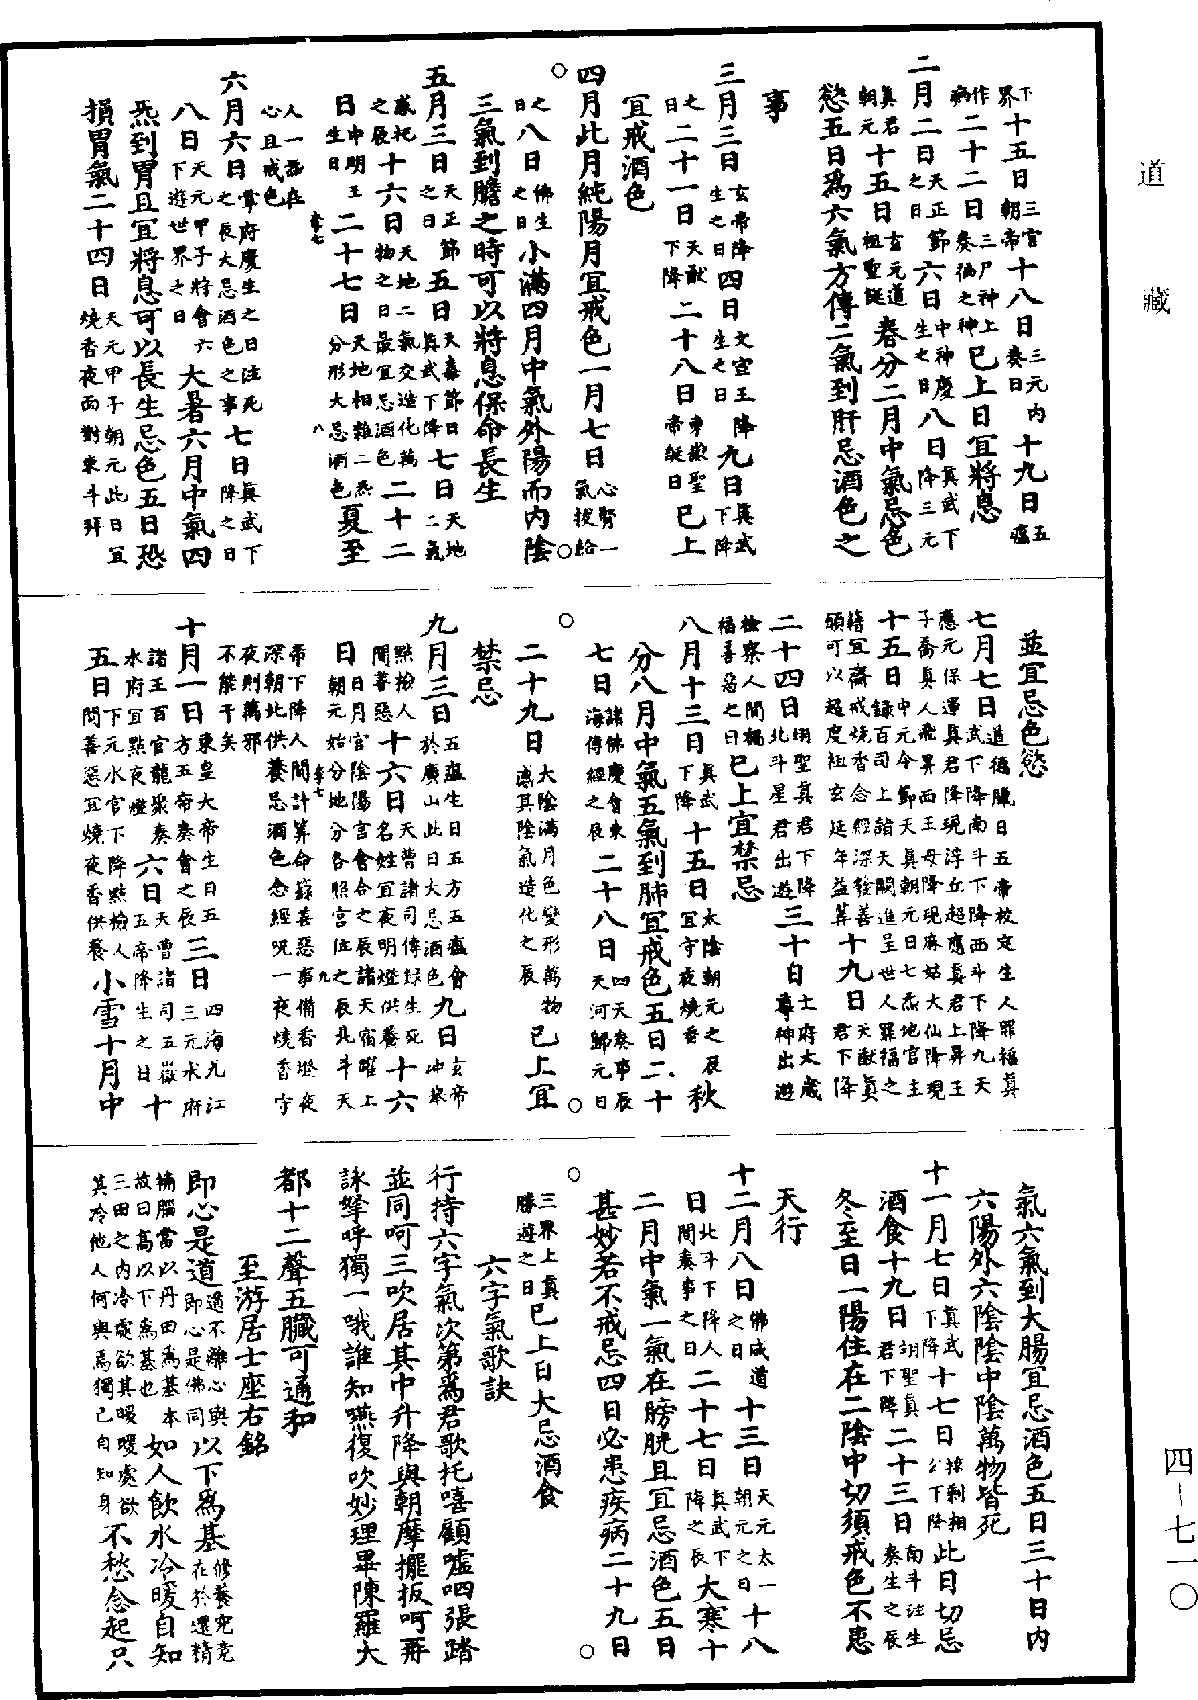 道藏
四—七一〇
下界十五日三官朝帝十八日三元內奏日十九日五瘟
作病二十二日三尸神上奏禍之神巳上日宜將息
二月二日天正節之日六日中神慶生之日八日真武下降三元
真君朝元十五日玄元道祖聖誕春分二月中氣忌色
慾五日爲六氣方傳二氣到肝忌酒色之
事
三月三日玄帝降生之日四日文宣王降生之日九日真武下降
之日二十一日天猷下降二十八日東嶽聖帝誕日巳上
宜戒酒色
四月此月純陽月宜戒色一月七日心腎一氣拔給
之日八日佛生之日小滿四月中氣外陽而内陰
三氣到膽之時可以將息保命長生
五月三日天正節之日五日天壽節日真武下降七日天地二氣
感托之辰十六日天地二氣交造化萬物之日最宜忌酒色二十二
日中明王生日二十七日天地相雜二炁分形大忌酒色夏至
人一
心且戒色
六月六日掌府慶生之日注死之辰大忌酒色之事七日真武下降之日
八日天元甲子將會六下遊世界之日大暑六月中氣四
炁到胃且宜將息可以長生忌色五日恐
損胃氣二十四日天元甲子朝元此日宜燒香夜面對東斗拜
並宜忌色慾
七月七日道德臘日五帝校定生人罪福真武下降南斗下降西斗下降九天
應元保運真君降現浮丘超應真君上昇王子喬真人飛昇西王母降現麻姑大仙降現
十五日中元令節天真朝元日七炁地官主錄百司上詣天闕進呈世人罪福之
籍宜齋戒燒香念經深銓善願可以超度祖玄延年益算十九日天猷真君下降
二十四日翊聖真君下降北斗星君出遊三十日士府太歲尊神出遊
檢察人間禍福善惡之日巳上宜禁忌
八月十三日真武下降十五日太陰朝元之辰宜守夜燒香秋
分八月中氣五氣到肺宜戒色五日二十
七日諸佛慶會東海傳經之辰二十八日四天奏事辰天河歸元日
二十九日太陰滿月色變形萬物盛其陰氣造化之辰巳上宜
禁忌
九月三日五瘟生日五方五瘟會於廣山此日大忌酒色九日玄帝冲舉
點檢人間善惡十六日天曹諸司傳錄生死名姓宜夜明燈供養十六
日日月宮陰陽官會合之辰諸天宿曜上朝元始分地分各照宮位之辰北斗天
帝下降人間計算命籙喜惡事備香燈夜深朝北供養忌酒色念經呪一夜燒香守
夜則萬邪不能干矣
十月一日東皇大帝生日五方五帝奏會之辰三日四海九江三元水府
諸王百官龍聚奏水府宜點夜燈六日天曹諸司五嶽五帝降生之日十
五日下元水官下降點檢人間善惡宜燒夜香供養小雪十月中
氣六氣到大腸宜忌酒色五日三十日内
六陽外六陰陰中陰萬物皆死
十一月七日真武下降十七日掠剩相公下降此日切忌
酒食十九日翊聖真君下降二十三日南斗注生奏生之辰
冬至日一陽住在二陰中切須戒色不患
天行
十二月八日佛成道之日十三日天元太一朝元之日十八
日北斗下降人間奏事之日二十七日真武下降之辰大寒十
二月中氣一氣在膀胱且宜忌酒色五日
甚妙若不戒忌四日必患疾病二十九日
三界上真勝遊之日巳上日大忌酒食
六字氣歌訣
行持六字氣次第爲君歌托嘻顧噓呬張踏
並同呵三吹居其中升降與朝摩擺扳呵再
詠擎呼獨一哦誰知嚥復吹妙理畢陳羅大
都十二聲五臟可通和
至游居士座右銘
即心是道道不離心與道即心是佛同以下爲基修養究竟在於還精
補腦當以丹田爲基本故曰高以下爲基也如人飲水冷暖自知
三田之内冷處欲其暖暖處欲其冷他人何與焉獨己自知身不愁念起只